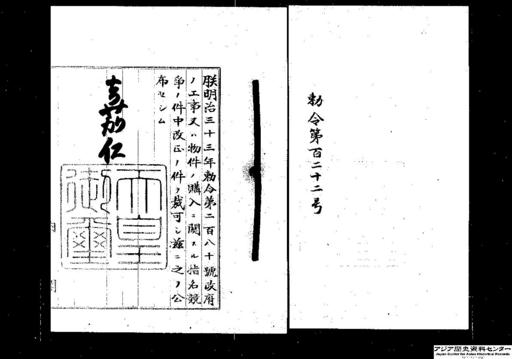 勅令第百二十二号
朕明治三十三年勅令第二百八十號政府
ノ工事又ハ物件ノ購入ニ關スル指名競
爭ノ件中改正ノ件ヲ裁可シ茲ニ之ヲ公
布セシム
嘉仁
天皇
御璽
アジア歴史資料センター
Japan Center for Asian Historical Records